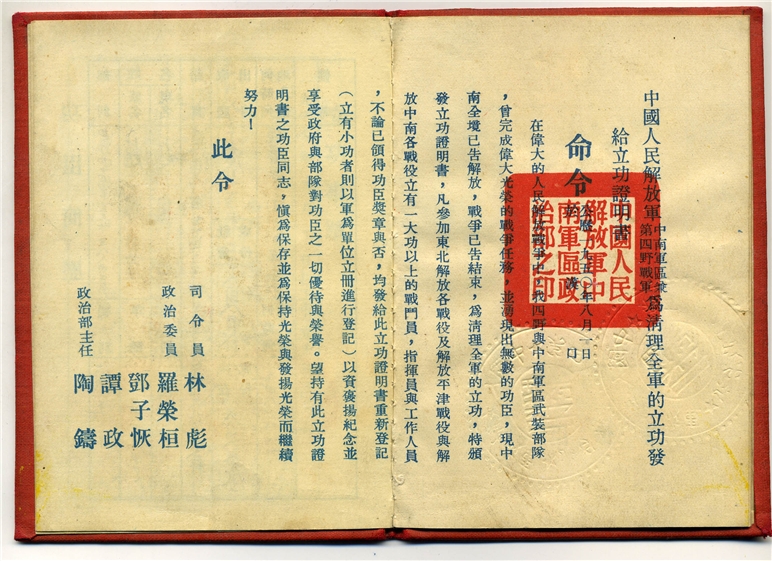 中國人民解放軍中南軍區兼第四野戰軍爲清理全軍的立功發
給立功證明書
命令
公曆一九五〇年八月一日
在偉大的人民解放戰爭中，我四野與中南軍區武裝部隊
，曾完成偉大光榮的戰爭任務，並湧現出無數的功臣，現中
南全境已告解放，戰爭已告結束，爲清理全軍的立功，特頒
發立功證明書，凡參加東北解放各戰役及解放平津戰役與解
放中南各戰役立有一大功以上的戰鬥員，指揮員與工作人員
，不論已領得功臣獎章與否，均發給此立功證明書重新登記
（立有小功者則以軍爲單位立冊進行登記）以資褒揚紀念並
享受政府與部隊對功臣之一切優待與榮譽。望持有此立功證
明書之功臣同志，愼爲保存並爲保持光榮與發揚光榮而繼續
努力！
此令
司令員 林彪
政治委員 羅榮桓
鄧子恢
譚政
政治部主任 陶鑄
中國人民
解放軍中
南軍區政
治部之印